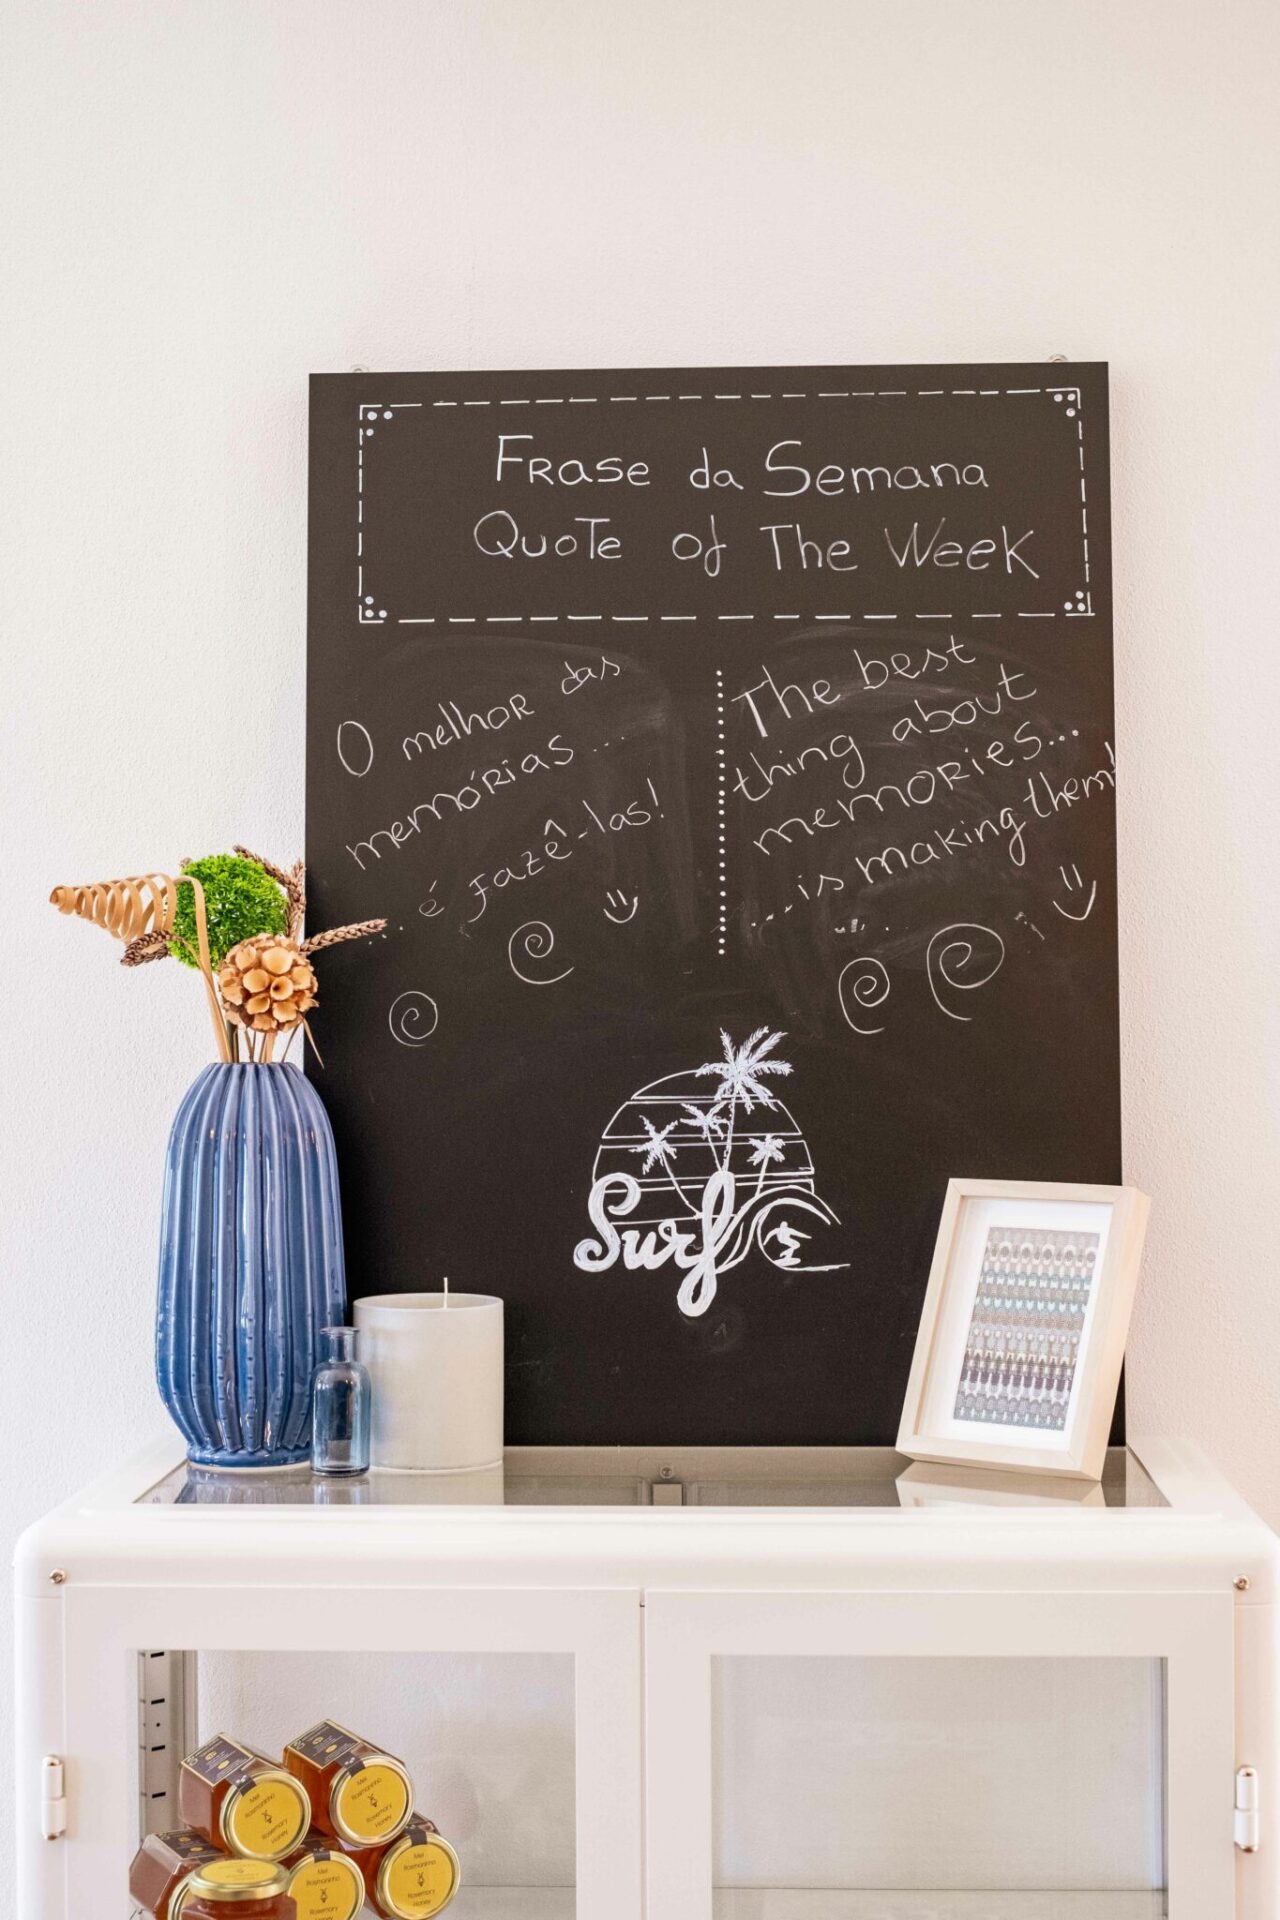 Frase da Semana
Quote of The Week
O melhor das
memórias ...
... é fazê-las!
The best
thing about
memories...
...is making them!
Surf
Mel
Rosmaninho
Rosemary
Honey
Mel
Rosmaninho
Rosemary
Honey
Mel
Rosmaninho
Rosemary
Honey
Mel
Rosmaninho
Rosemary
Honey